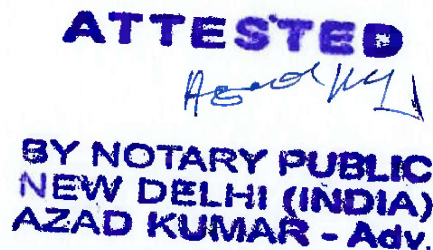 ATTESTED
BY NOTARY PUBLIC
NEW DELHI (INDIA)
AZAD KUMAR - Adv.